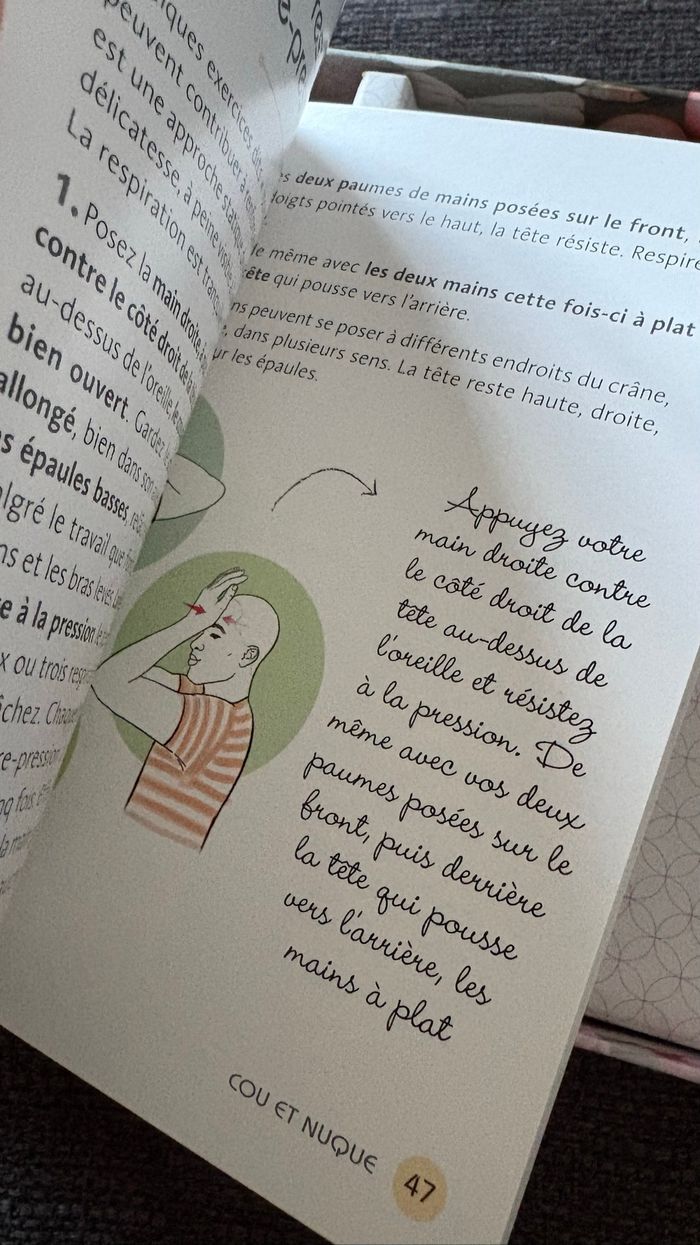 iques exercices dits
peuvent contribuer à
est une approche
délicatesse, à peine
La respiration est
1. Posez la main droite,
contre le côté droit de la
au-dessus de l'oreille,
bien ouvert. Gardez
allongé, bien dans son
s épaules basses,
lgré le travail que
ns et les bras levés.
e à la pression
x ou trois
chez.
re-pression
fois
s deux paumes de mains posées sur le front,
doigts pointés vers le haut, la tête résiste. Respire
le même avec les deux mains cette fois-ci à plat
tête qui pousse vers l'arrière.
ns peuvent se poser à différents endroits du crâne,
dans plusieurs sens. La tête reste haute, droite,
ur les épaules.
Appuyez votre
main droite contre
le côté droit de la
tête au-dessus de
l'oreille et résistez
à la pression. De
même avec vos deux
paumes posées sur le
front, puis derrière
la tête qui pousse
vers l'arrière, les
mains à plat
COU ET NUQUE
47